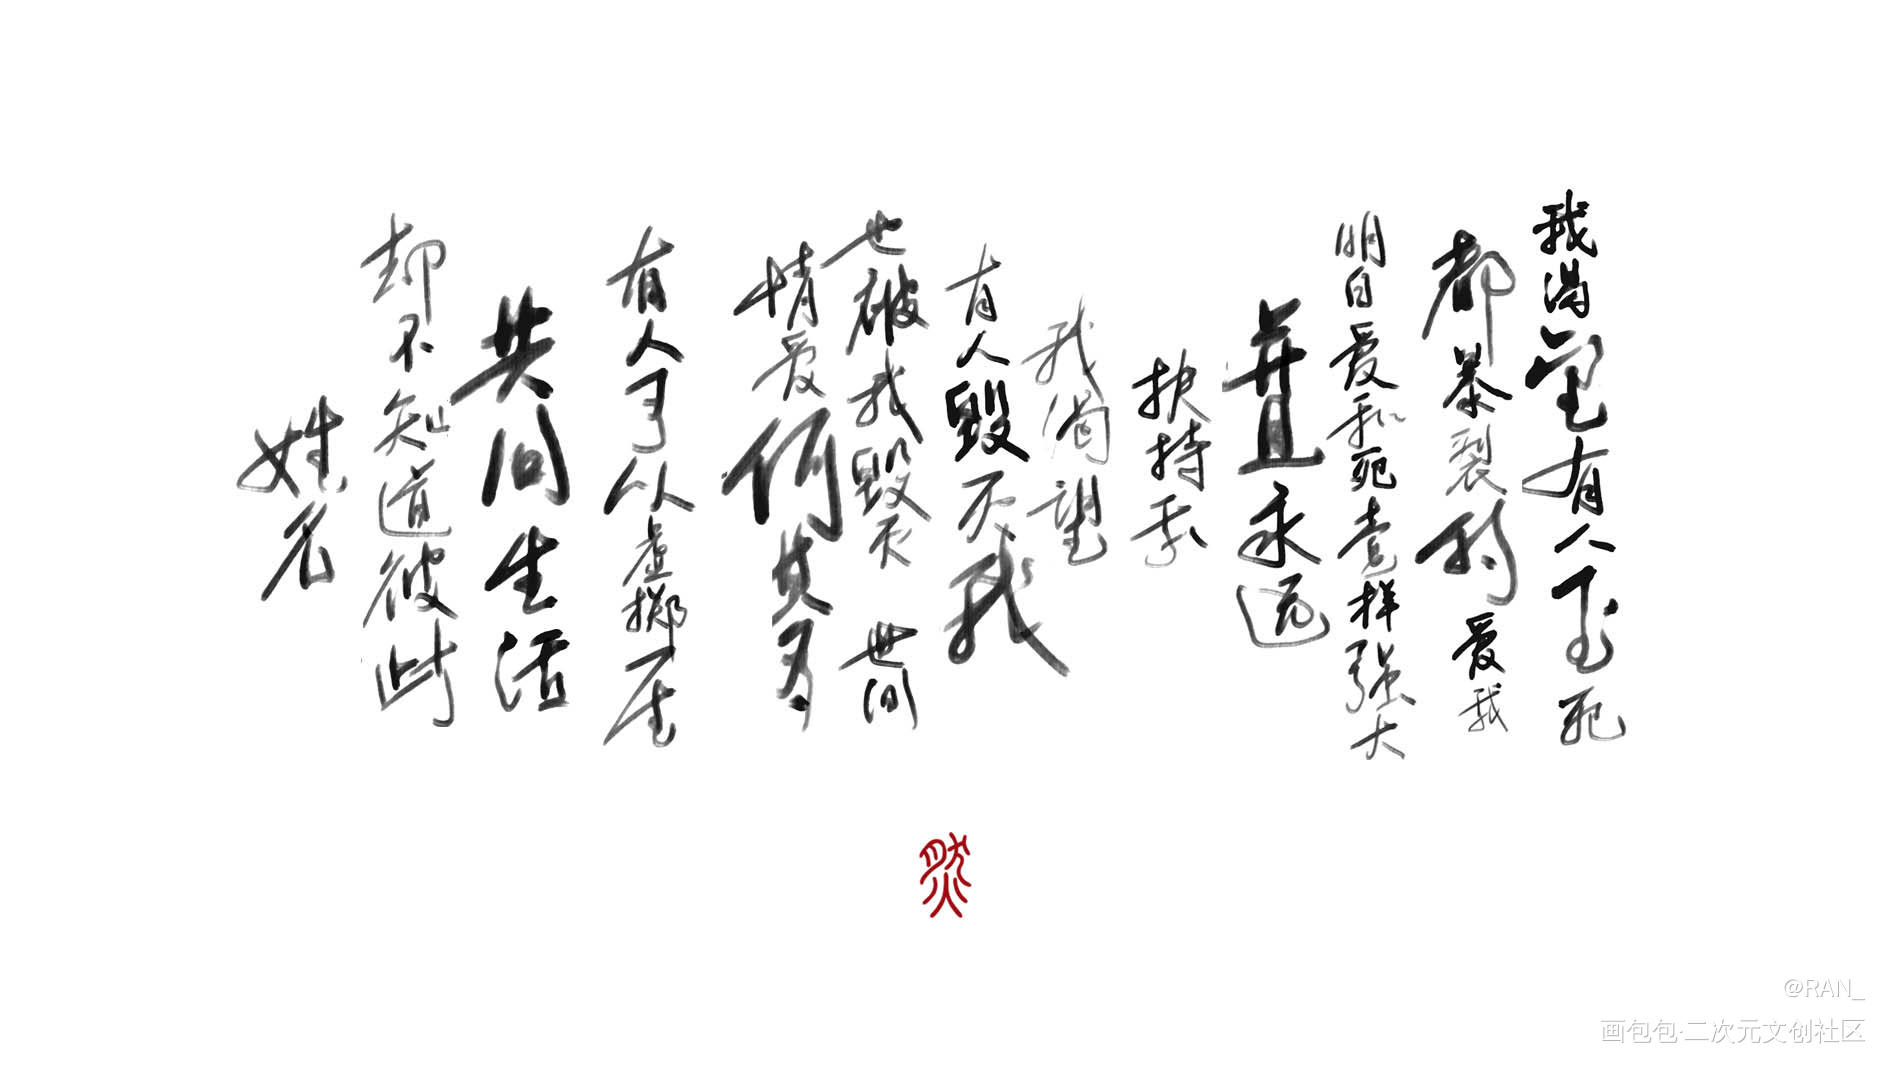 我渴望有人至死
都暴裂的爱我
明白爱和死意样强大
并且永远
扶持我
我渴望
有人毁灭我
也被我毁灭 世间
情爱何其多
有人可以虚掷一生
共同生活
却不知道彼此
姓名
然
@RAN_
画包包·二次元文创社区